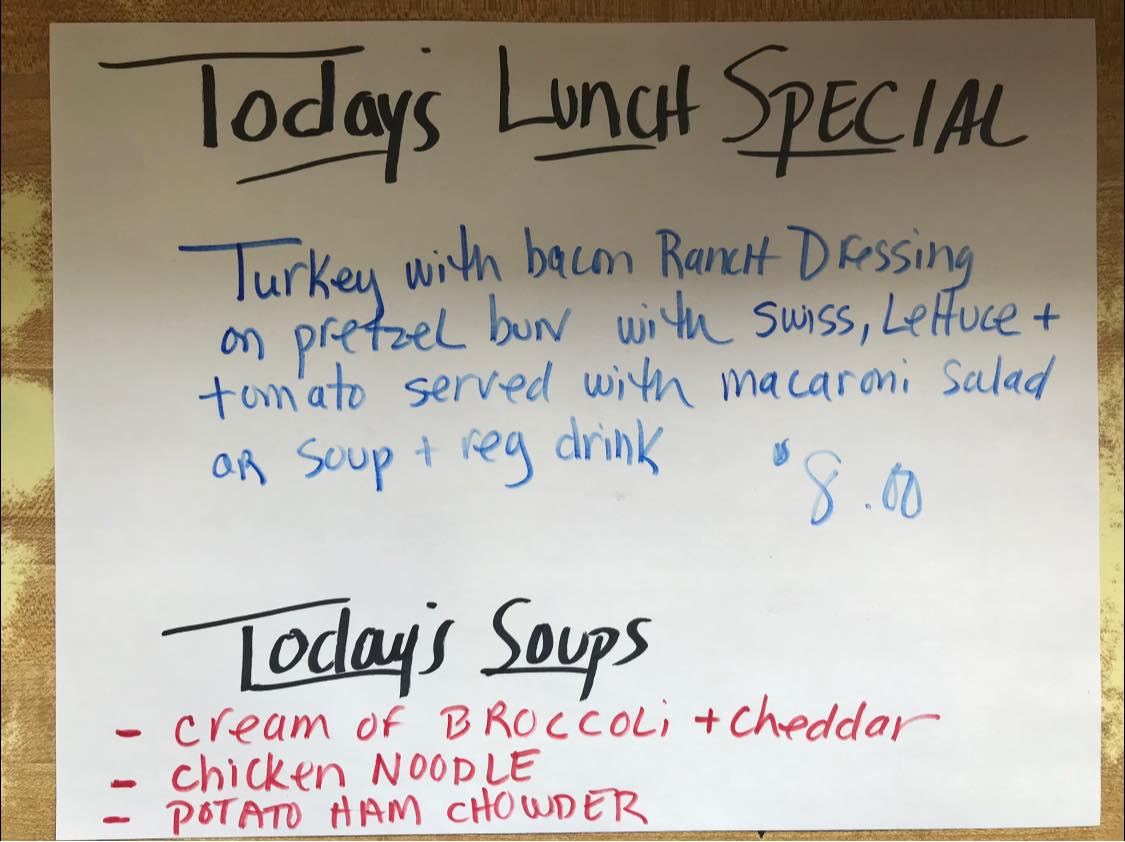 Today's Lunch SPECIAL
Turkey with bacon Ranch Dressing
on pretzel bun with swiss, Lettuce +
tomato served with macaroni salad
or soup + reg drink $8.00
Today's Soups
- cream of BROCCOLi + cheddar
- chicken NOODLE
- POTATO HAM CHOWDER